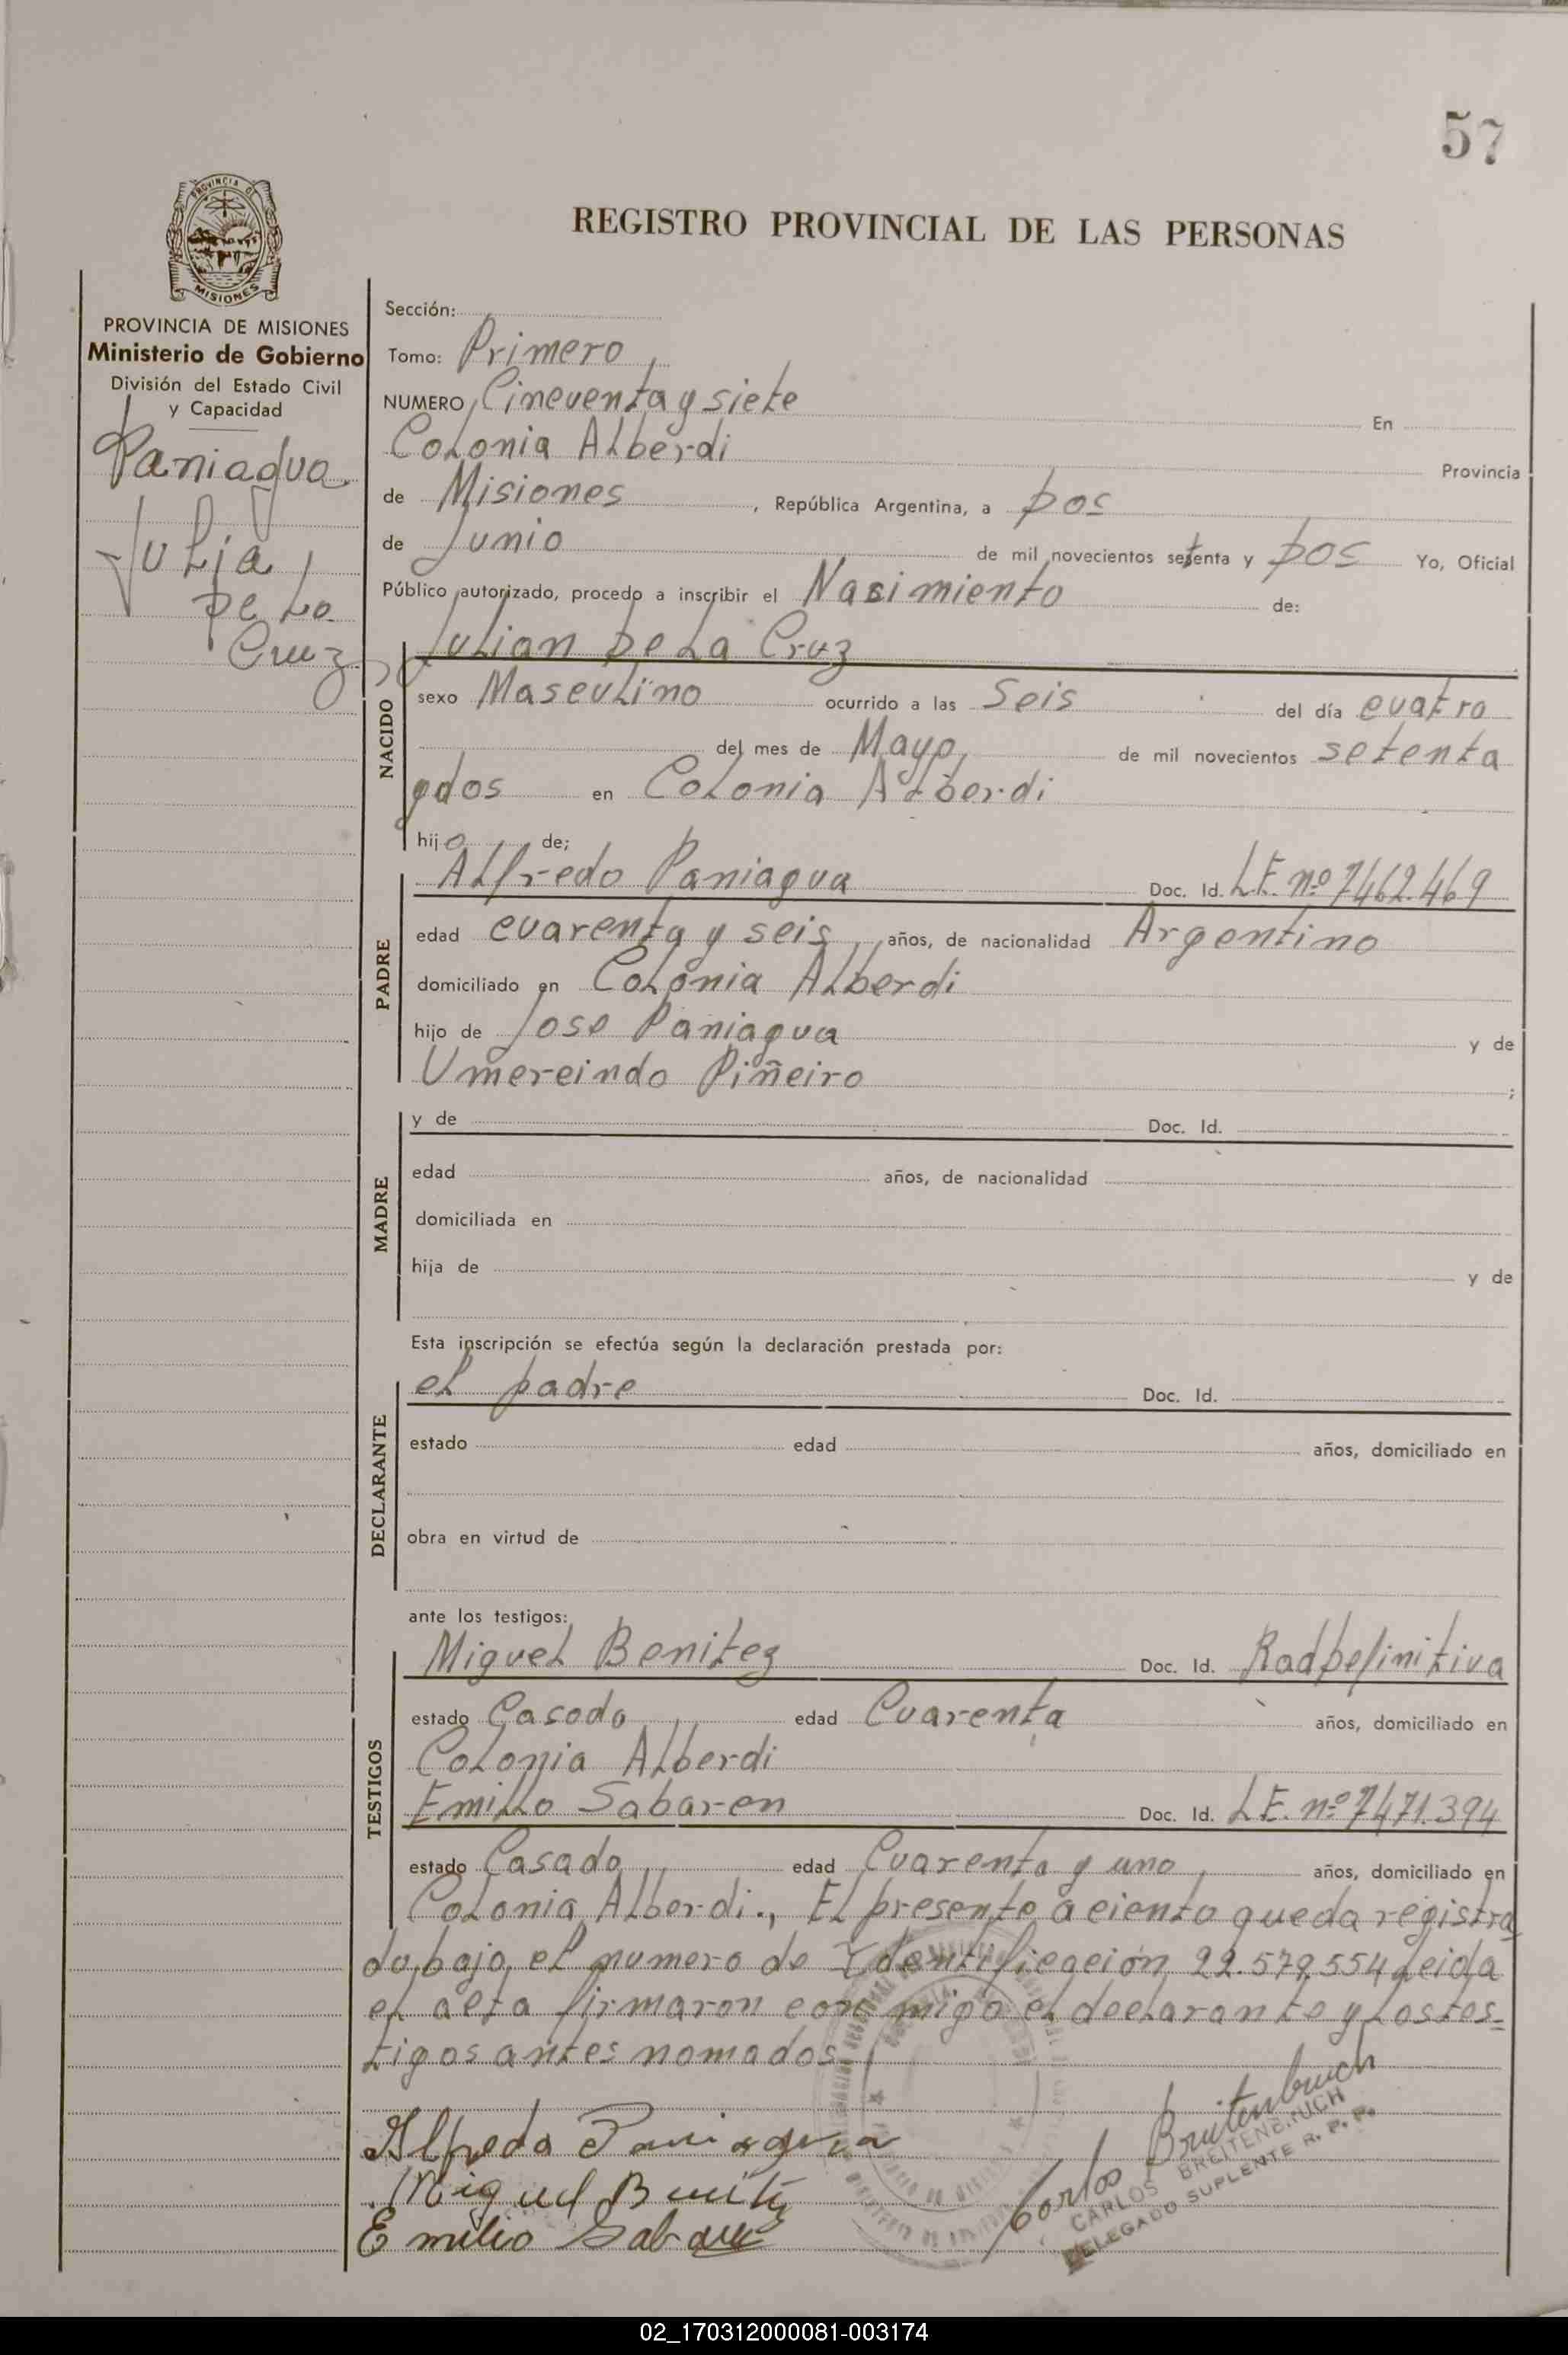 57
PROVINCIA DE
MISIONES
REGISTRO PROVINCIAL DE LAS PERSONAS
PROVINCIA DE MISIONES
Ministerio de Gobierno
División del Estado Civil
y Capacidad
Paniagua
Julia
De La
Cruz
Sección:
Tomo: Primero
NUMERO Cincuenta y siete En
Colonia Alberdi Provincia
de Misiones, República Argentina, a Dos
de Junio de mil novecientos setenta y Dos Yo, Oficial
Público autorizado, procedo a inscribir el Nacimiento de:
Julian De La Cruz
NACIDO
sexo Masculino ocurrido a las Seis del día cuatro
del mes de Mayo, de mil novecientos setenta
y dos en Colonia Alberdi
hijo de;
PADRE
Alfredo Paniagua Doc. Id. L.E. nº 7462.469
edad cuarenta y seis años, de nacionalidad Argentino
domiciliado en Colonia Alberdi
hijo de Jose Paniagua y de
Umereindo Piñeiro ;
MADRE
y de Doc. Id.
edad años, de nacionalidad
domiciliada en
hija de y de
Esta inscripción se efectúa según la declaración prestada por:
DECLARANTE
el padre Doc. Id.
estado edad años, domiciliado en
obra en virtud de
ante los testigos:
TESTIGOS
Miguel Benitez Doc. Id. Rad Definitiva
estado Casado edad Cuarenta años, domiciliado en
Colonia Alberdi
Emilio Sabaren Doc. Id. L.E. nº 7471.394
estado Casado edad Cuarenta y uno, años, domiciliado en
Colonia Alberdi., El presente aciento queda registra
do, bajo, el numero de Identificación, 22.579.554 Leida
el acta firmaron con migo el declarante y Los tes-
tigos antes nomados
Alfredo Paniagua
Miguel Benitez
Emilio
Carlos Breitenbruch
CARLOS BREITENBRUCH
DELEGADO SUPLENTE R. P. P.
02_170312000081-003174